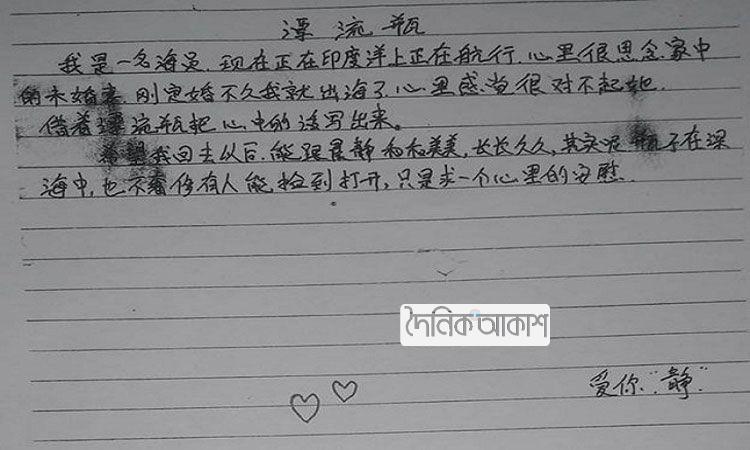 漂流瓶
我是一名海员.现在正在印度洋上正在航行.心里很思念家中
的未婚妻.刚定婚不久我就出海了心里感觉很对不起她.
借着漂流瓶把心中的话写出来。
希望我回去以后.能跟 静和和美美,长长久久,其实 瓶子在深
海中,也不 有人能捡到打开,只是求一个心里的安慰.
দৈনিক আকাশ
爱你"静"